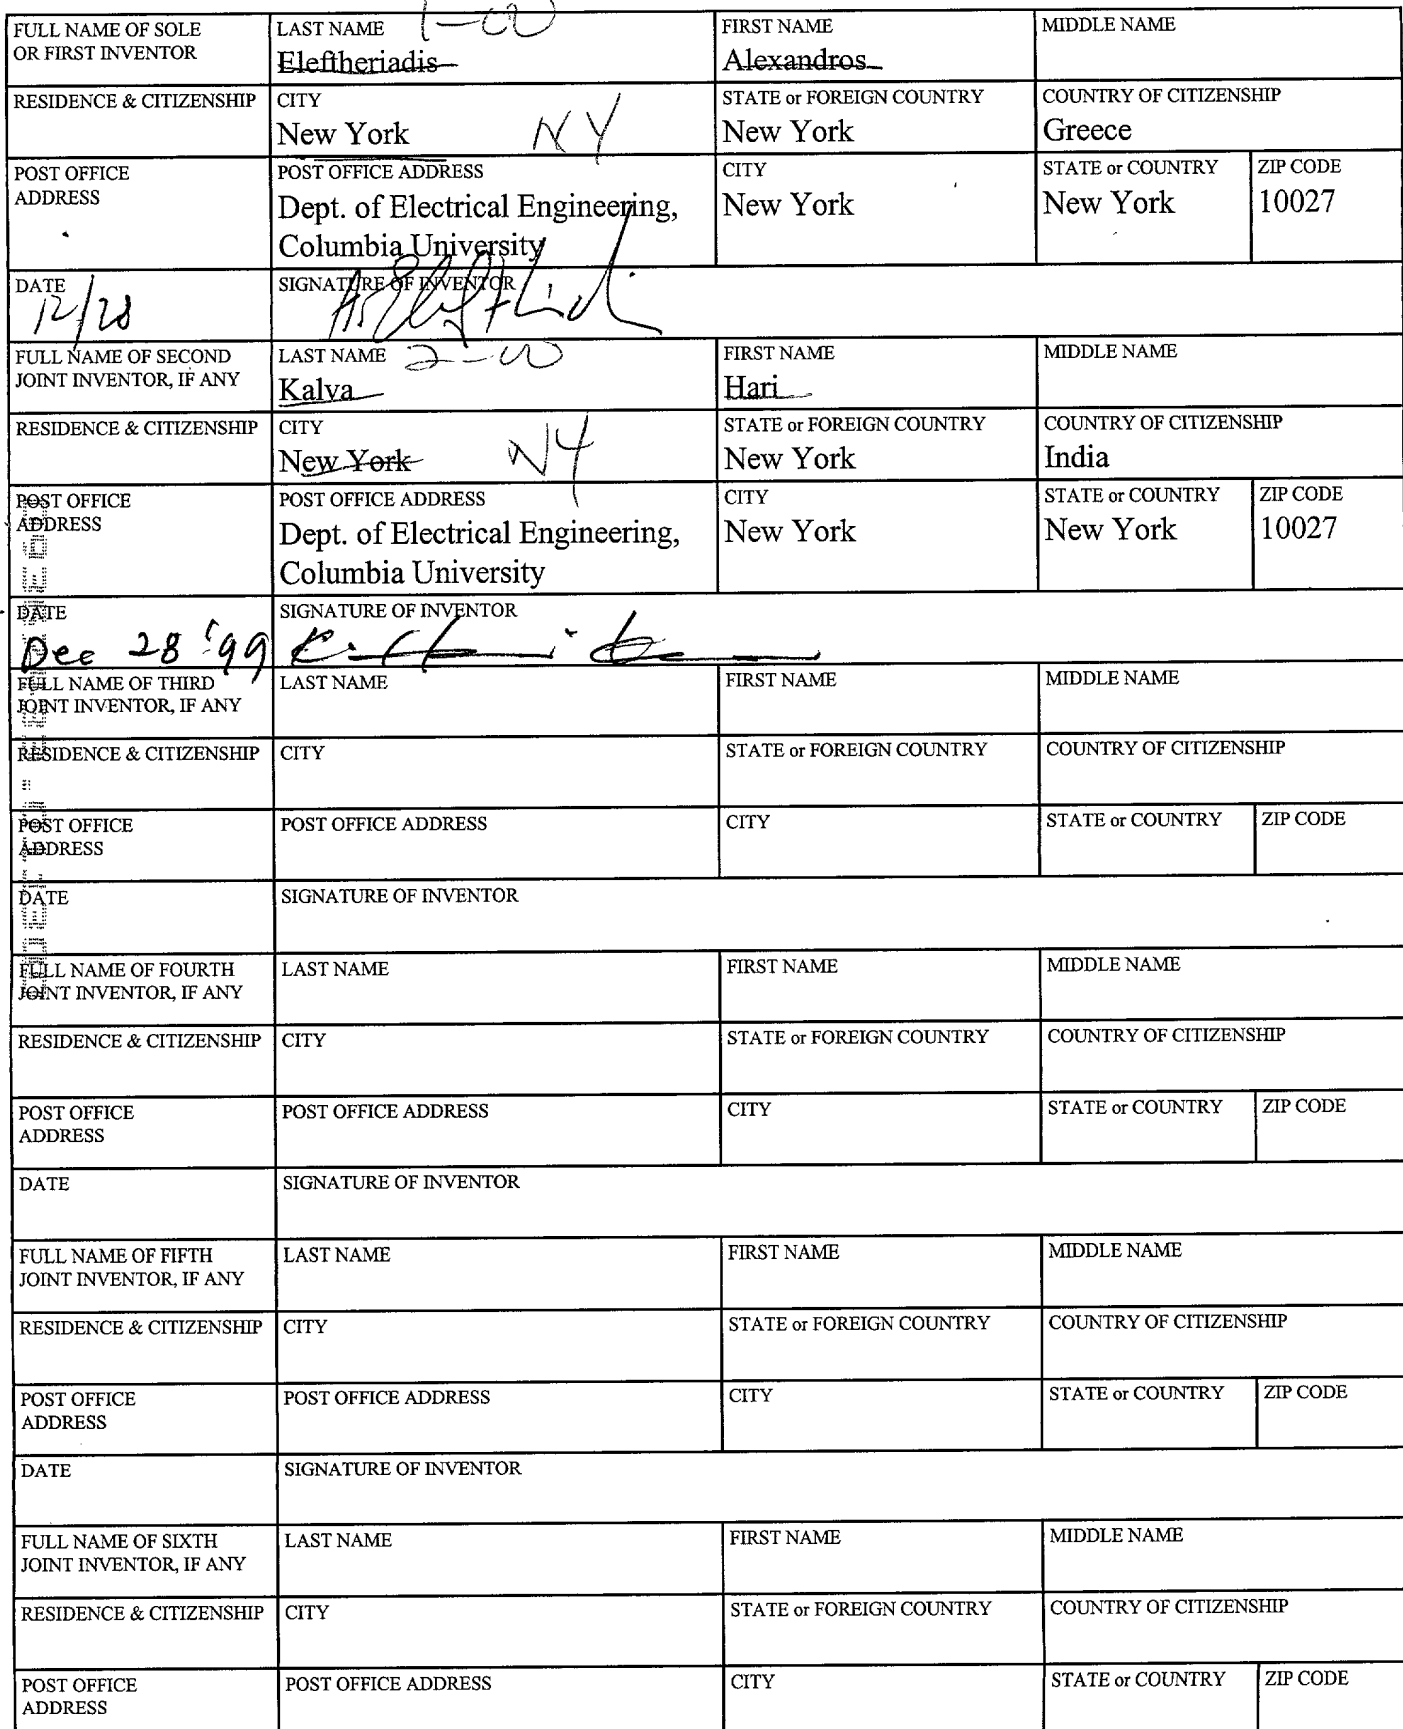 FULL NAME OF SOLE
OR FIRST INVENTOR
LAST NAME 1-00
Eleftheriadis
FIRST NAME
Alexandros
MIDDLE NAME
RESIDENCE & CITIZENSHIP
CITY
New York NY
STATE or FOREIGN COUNTRY
New York
COUNTRY OF CITIZENSHIP
Greece
POST OFFICE
ADDRESS
POST OFFICE ADDRESS
Dept. of Electrical Engineering,
Columbia University
CITY
New York
STATE or COUNTRY
New York
ZIP CODE
10027
DATE
12/28
SIGNATURE OF INVENTOR
FULL NAME OF SECOND
JOINT INVENTOR, IF ANY
LAST NAME 2-00
Kalva
FIRST NAME
Hari
MIDDLE NAME
RESIDENCE & CITIZENSHIP
CITY
New York NY
STATE or FOREIGN COUNTRY
New York
COUNTRY OF CITIZENSHIP
India
POST OFFICE
ADDRESS
POST OFFICE ADDRESS
Dept. of Electrical Engineering,
Columbia University
CITY
New York
STATE or COUNTRY
New York
ZIP CODE
10027
DATE
Dec 28 '99
SIGNATURE OF INVENTOR
FULL NAME OF THIRD
JOINT INVENTOR, IF ANY
LAST NAME
FIRST NAME
MIDDLE NAME
RESIDENCE & CITIZENSHIP
CITY
STATE or FOREIGN COUNTRY
COUNTRY OF CITIZENSHIP
POST OFFICE
ADDRESS
POST OFFICE ADDRESS
CITY
STATE or COUNTRY
ZIP CODE
DATE
SIGNATURE OF INVENTOR
FULL NAME OF FOURTH
JOINT INVENTOR, IF ANY
LAST NAME
FIRST NAME
MIDDLE NAME
RESIDENCE & CITIZENSHIP
CITY
STATE or FOREIGN COUNTRY
COUNTRY OF CITIZENSHIP
POST OFFICE
ADDRESS
POST OFFICE ADDRESS
CITY
STATE or COUNTRY
ZIP CODE
DATE
SIGNATURE OF INVENTOR
FULL NAME OF FIFTH
JOINT INVENTOR, IF ANY
LAST NAME
FIRST NAME
MIDDLE NAME
RESIDENCE & CITIZENSHIP
CITY
STATE or FOREIGN COUNTRY
COUNTRY OF CITIZENSHIP
POST OFFICE
ADDRESS
POST OFFICE ADDRESS
CITY
STATE or COUNTRY
ZIP CODE
DATE
SIGNATURE OF INVENTOR
FULL NAME OF SIXTH
JOINT INVENTOR, IF ANY
LAST NAME
FIRST NAME
MIDDLE NAME
RESIDENCE & CITIZENSHIP
CITY
STATE or FOREIGN COUNTRY
COUNTRY OF CITIZENSHIP
POST OFFICE
ADDRESS
POST OFFICE ADDRESS
CITY
STATE or COUNTRY
ZIP CODE